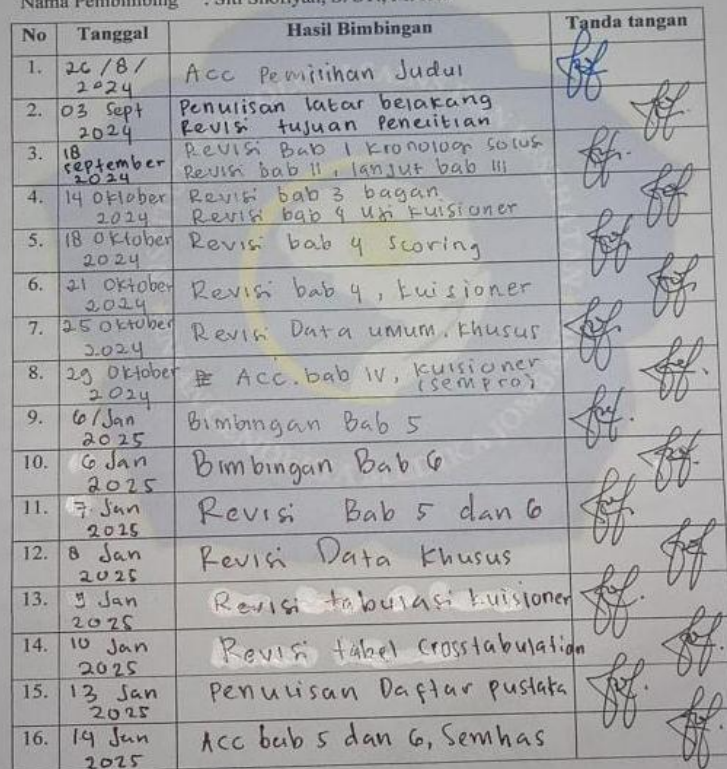 Nama Pembimbing :
No Tanggal Hasil Bimbingan Tanda tangan
1. 26/8/ 2024 Acc Pemilihan Judul
2. 03 Sept 2024 Penulisan latar belakang
Revisi tujuan Penelitian
3. 18 september 2024 Revisi Bab I kronologi solus
Revisi bab II, lanjut bab III
4. 14 Oktober 2024 Revisi bab 3 bagan
Revisi bab 4 uji kuisioner
5. 18 Oktober 2024 Revisi bab 4 scoring
6. 21 Oktober 2024 Revisi bab 4, kuisioner
7. 25 oktober 2024 Revisi Data umum. khusus
8. 29 Oktober 2024 Acc. bab IV, kuisioner
(sempro)
9. 6/Jan 2025 Bimbingan Bab 5
10. 6 Jan 2025 Bimbingan Bab 6
11. 7 Jan 2025 Revisi Bab 5 dan 6
12. 8 Jan 2025 Revisi Data Khusus
13. 9 Jan 2025 Revisi tabulasi kuisioner
14. 10 Jan 2025 Revisi tabel Crosstabulation
15. 13 Jan 2025 Penulisan Daftar pustaka
16. 14 Jan 2025 Acc bab 5 dan 6, Semhas